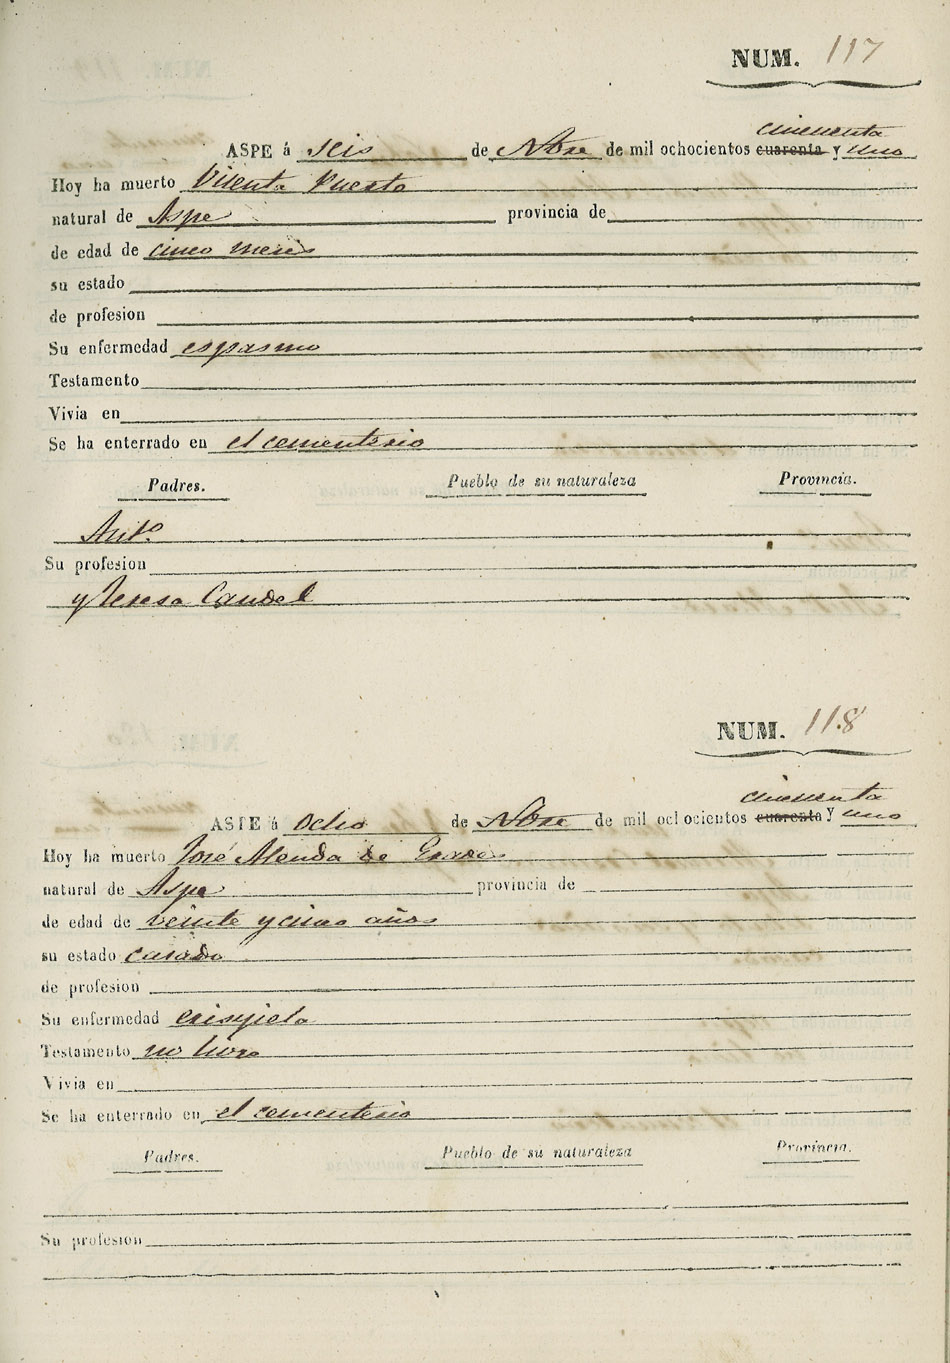 NUM. 117
cincuenta
ASPE á seis de Nbre de mil ochocientos cuarenta y uno
Hoy ha muerto Vicenta Puerto
natural de Aspe provincia de
de edad de cinco meses
su estado
de profesion
Su enfermedad espasmo
Testamento
Vivia en
Se ha enterrado en el cementerio
Padres. Pueblo de su naturaleza Provincia.
Anto.
Su profesion
y Teresa Caudel
NUM. 118
cincuenta
ASPE á ocho de Nbre de mil ochocientos cuarenta y uno
Hoy ha muerto José Alenda de
natural de Aspe provincia de
de edad de veinte y cinco años
su estado casado
de profesion
Su enfermedad erisipela
Testamento no hizo
Vivia en
Se ha enterrado en el cementerio
Padres. Pueblo de su naturaleza Provincia.
Su profesion